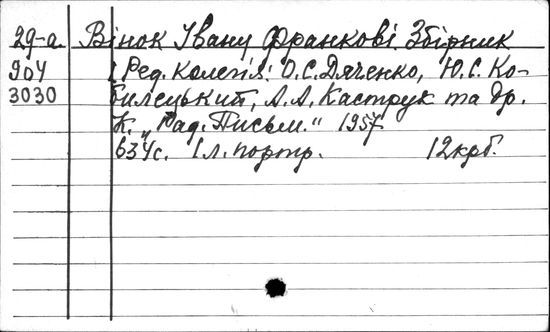 29-а Вінок Івану Франкові Збірник
904 [Ред. колегія: О.С.Дяченко, Ю.С. Ко-
3030 билецький, А.А. Каструк та др.
К. „Рад. Письм.“ 1957
634с. 1 л. портр. 12крб.